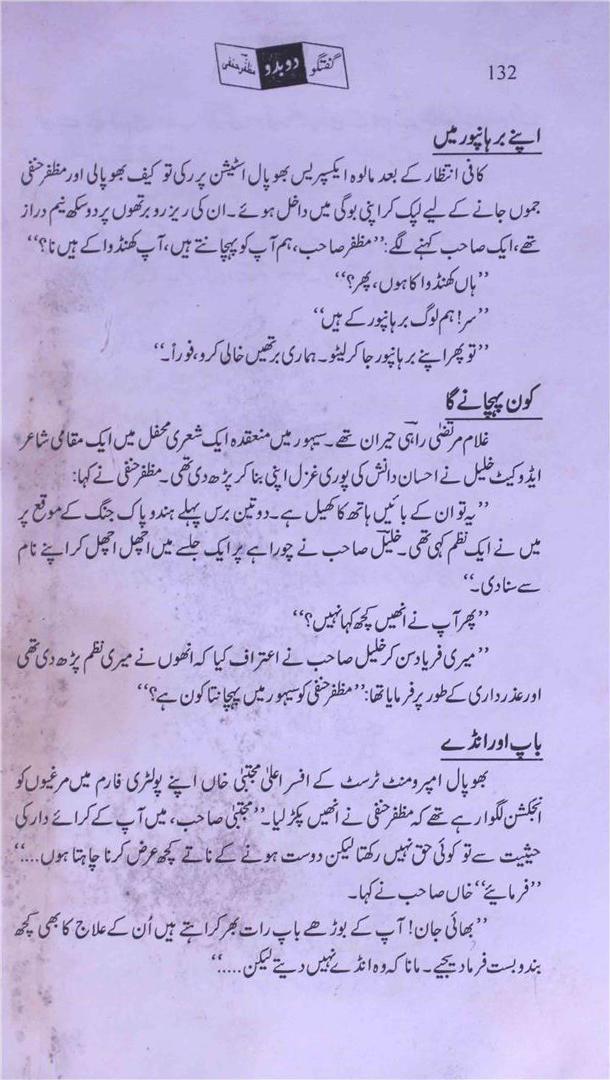 132
گفتگو دوبدو مظفر حنفی
اپنے برہانپور میں
کافی انتظار کے بعد مالوہ ایکسپریس بھوپال اسٹیشن پر رکی تو کیف بھوپالی اور مظفر حنفی
جموں جانے کے لیے لپک کر اپنی بوگی میں داخل ہوئے۔ ان کی ریزرو برتھوں پر دو سکھ نیم دراز
تھے، ایک صاحب کہنے لگے: ”مظفر صاحب، ہم آپ کو پہچانتے ہیں، آپ کھنڈوا کے ہیں نا؟“
”ہاں کھنڈوا کا ہوں، پھر؟“
”سر! ہم لوگ برہانپور کے ہیں“
”تو پھر اپنے برہانپور جا کر لیٹو۔ ہماری برتھیں خالی کرو، فوراً۔“
کون پہچانے گا
غلام مرتضیٰ راہیؔ حیران تھے۔ سیہور میں منعقدہ ایک شعری محفل میں ایک مقامی شاعر
ایڈوکیٹ خلیل نے احسان دانش کی پوری غزل اپنی بنا کر پڑھ دی تھی۔ مظفر حنفی نے کہا:
”یہ تو ان کے بائیں ہاتھ کا کھیل ہے۔ دو تین برس پہلے ہندو پاک جنگ کے موقع پر
میں نے ایک نظم کہی تھی۔ خلیلؔ صاحب نے چوراہے پر ایک جلسے میں اچھل اچھل کر اپنے نام
سے سنا دی۔“
”پھر آپ نے انھیں کچھ کہا نہیں؟“
”میری فریاد سن کر خلیل صاحب نے اعتراف کیا کہ انھوں نے میری نظم پڑھ دی تھی
اور عذر داری کے طور پر فرمایا تھا: ”مظفر حنفی کو سیہور میں پہچانتا کون ہے؟“
باپ اور انڈے
بھوپال امپرومنٹ ٹرسٹ کے افسر اعلیٰ مجتبیٰ خاں اپنے پولٹری فارم میں مرغیوں کو
انجکشن لگوا رہے تھے کہ مظفر حنفی نے انھیں پکڑ لیا۔ ”مجتبیٰ صاحب، میں آپ کے کرائے دار کی
حیثیت سے تو کوئی حق نہیں رکھتا لیکن دوست ہونے کے ناتے کچھ عرض کرنا چاہتا ہوں....“
”فرمایئے“ خاں صاحب نے کہا۔
”بھائی جان! آپ کے بوڑھے باپ رات بھر کراہتے ہیں اُن کے علاج کا بھی کچھ
بندوبست فرما دیجیے۔ مانا کہ وہ انڈے نہیں دیتے لیکن.....“